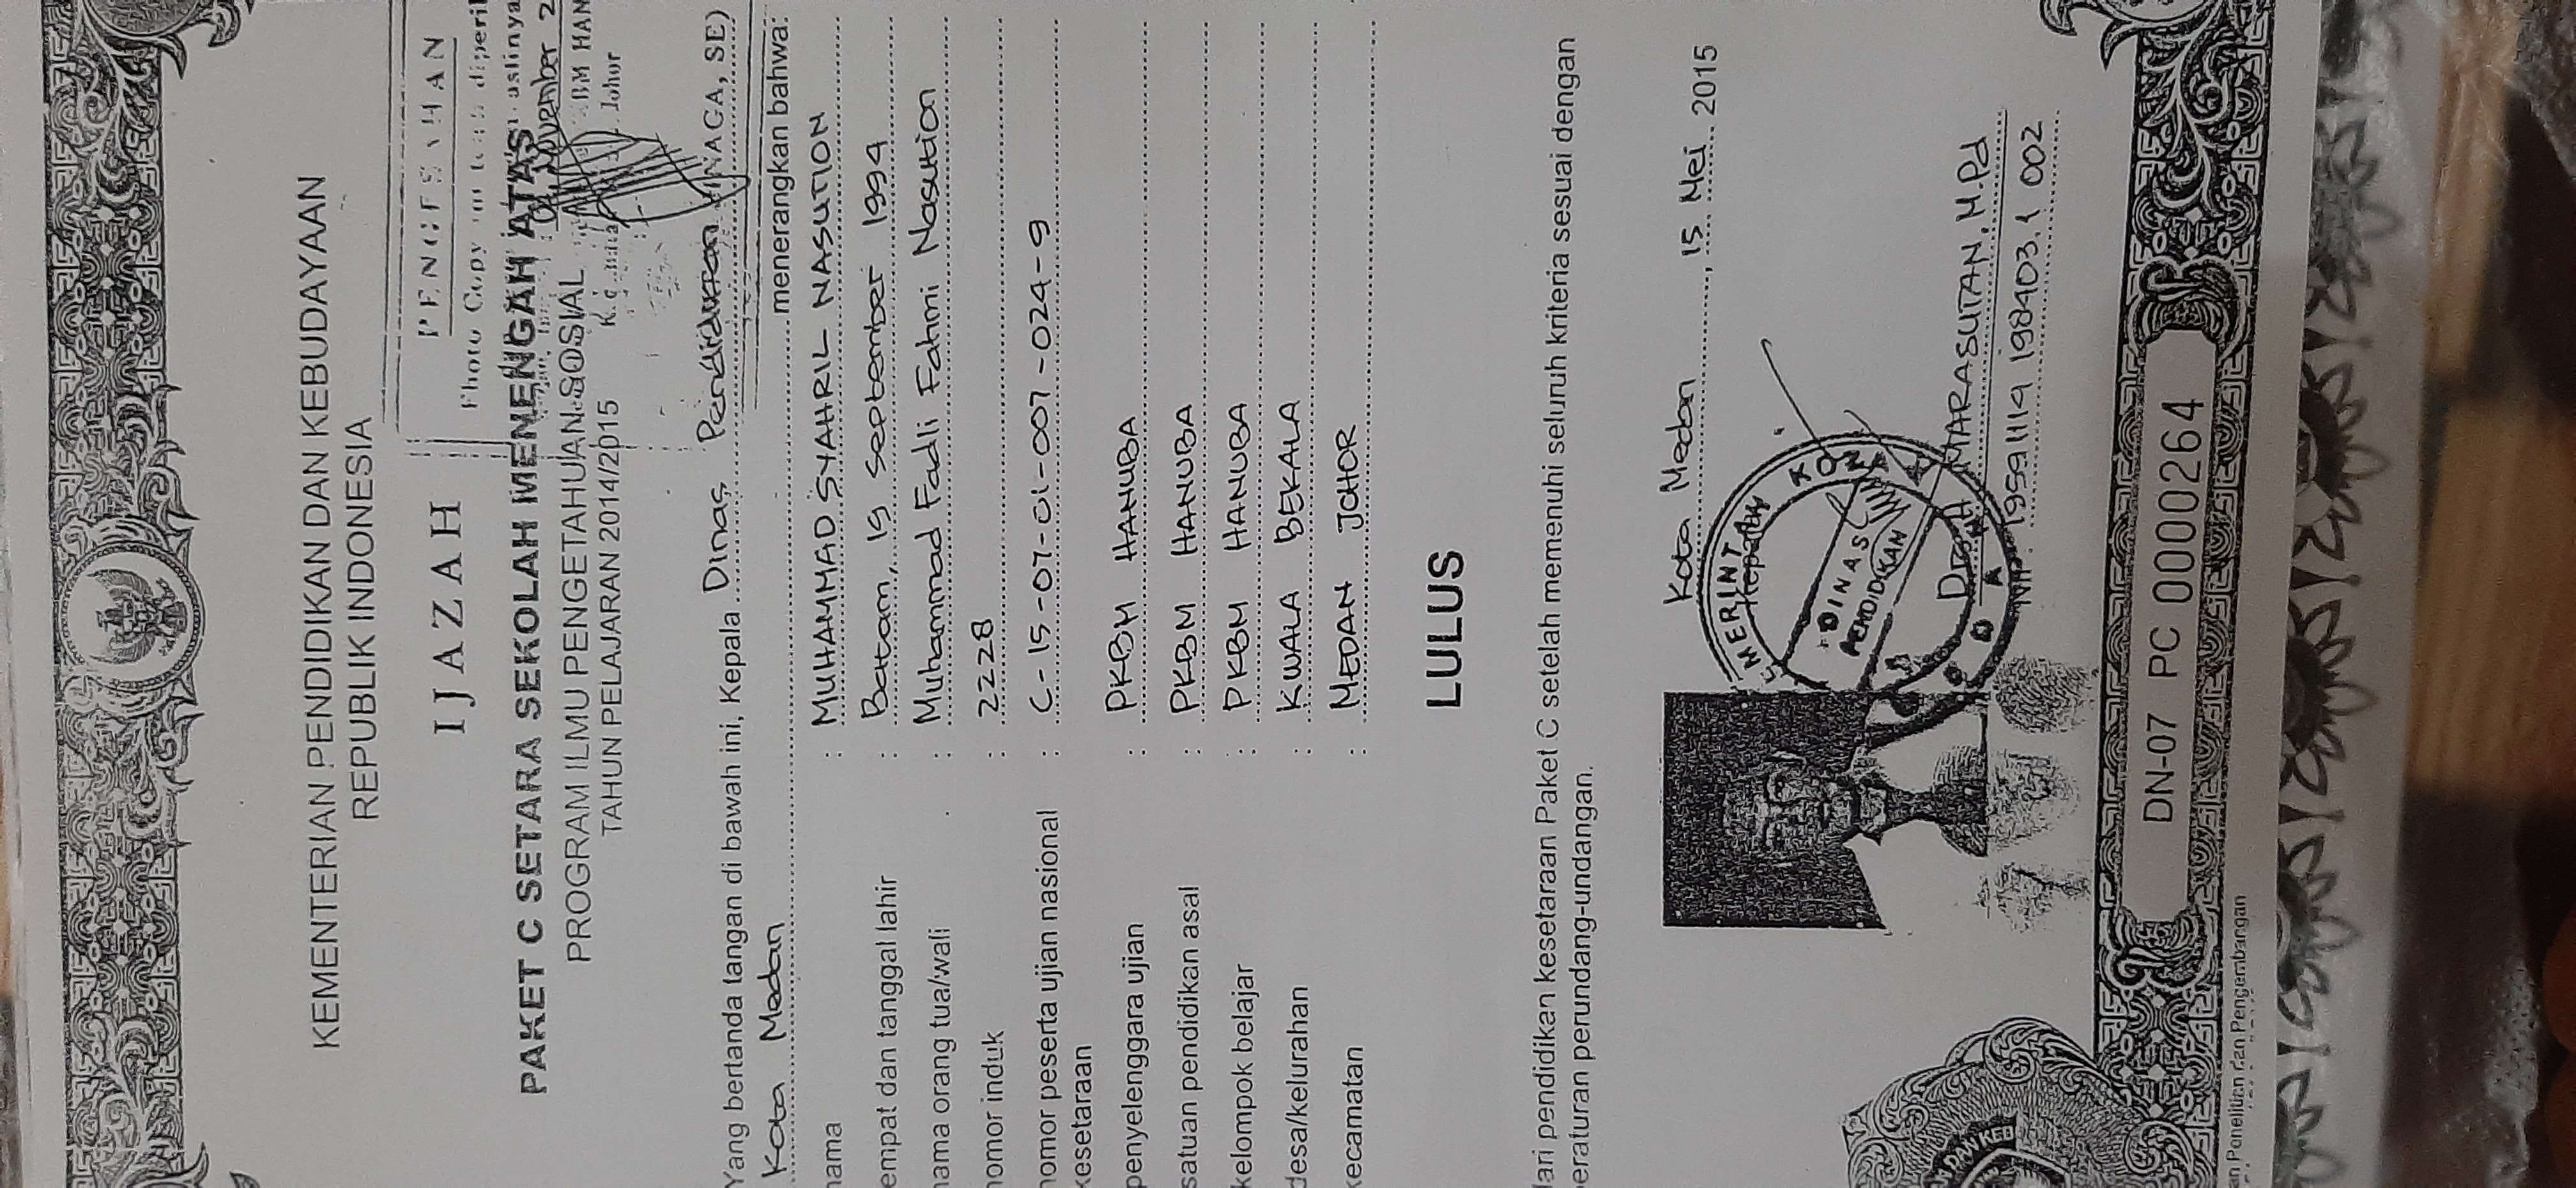 KEMENTERIAN PENDIDIKAN DAN KEBUDAYAAN
REPUBLIK INDONESIA
IJAZAH
PENGESAHAN
Photo Copy diperi
aslinya
PAKET C SETARA SEKOLAH MENENGAH ATAS
November 2
PROGRAM ILMU PENGETAHUAN SOSIAL
BM HAN
TAHUN PELAJARAN 2014/2015
Johor
Yang bertanda tangan di bawah ini, Kepala Dinas Pendidikan
NAGA, SE)
Kota Medan menerangkan bahwa:
nama : MUHAMMAD SYAHRIL NASUTION
empat dan tanggal lahir : Batam, 19 September 1994
nama orang tua/wali : Muhammad Fadli Fahmi Nasution
nomor induk : 2228
nomor peserta ujian nasional : C-15-07-01-007-024-9
kesetaraan
penyelenggara ujian : PKBM HANUBA
satuan pendidikan asal : PKBM HANUBA
kelompok belajar : PKBM HANUBA
desa/kelurahan : KWALA BEKALA
kecamatan : MEDAN JOHOR
LULUS
dari pendidikan kesetaraan Paket C setelah memenuhi seluruh kriteria sesuai dengan
peraturan perundang-undangan.
Kota Medan, 15 Mei 2015
Kepala
EMERINTAH KOTA
DINAS
PENDIDIKAN
Drs. H. MARASUTAN, M.Pd
NIP. 19591114 198403.1 002
DN-07 PC 0000264
an Penelitian dan Pengembangan